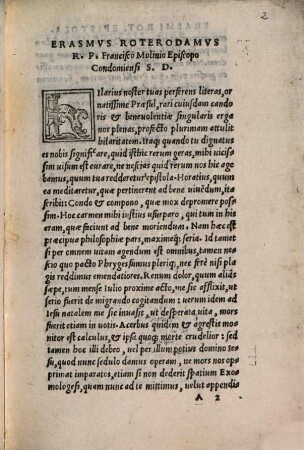 2
ERASMVS ROTERODAMVS
R. P. Francisco Molinio Episcopo
Condomiensi S. D.
HIlarius noster tuas perferens literas, or
natissime Præsul, rari cuiusdam cando
ris & beneuolentiæ singularis erga
nos plenas, profecto plurimam attulit
hilaritatem. Itaqȝ quando tu dignatus
es nobis significare, quid isthic rerum geras, mihi uicis
sim uisum est curare, ne nescires quid rerum nos hic age
bamus, quum tua redderetur epistola. Horatius, quum
ea meditaretur, quæ pertinerent ad bene uiuēdum, ita
scribit: Condo & compono, quæ mox depromere possim
sim. Hoc carmen mihi iustius usurparo, qui tum in his
eram, quæ faciunt ad bene moriendum. Nam hæc est
præcipua philosophiæ pars, maximeqȝ seria. Id tamet
si per omnem uitam agendum est omnibus, tamen ne
scio quo pacto Phryges sumus pleriqȝ, nec ferè nisi pla
gis reddimur emendatiores. Renum dolor, quum aliàs
sæpe, tum mense Iulio proxime acto, me sic afflixit, ut
serio fuerit de migrando cogitandum: uerum idem ad
Iesu natalem me sic inuasit, ut desperata uita, mors
fuerit etiam in uotis. Acerbus quidem & agrestis mo
nitor est calculus, & ipsa quoqȝ morte crudelior: sed
tamen hoc illi debeo, uel per illum potius domino Ie
su, quod nunc sedulo damus operam, ne mors nos op
primat imparatos, etiam si non dederit spatium Exo
mologesi, quam nunc ad te mittimus, uelut appendi
A 2